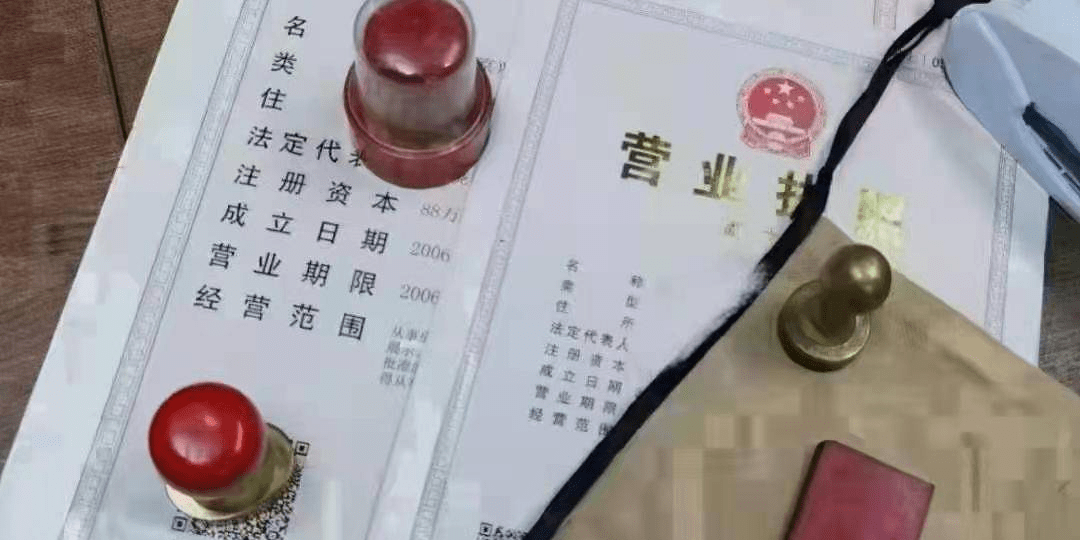 名
类
住
法定代表
注册资本 88万
成立日期 2006
营业期限 2006
经营范围
从事
展示
批准
得从
营业执照
名 称
类 型
住 所
法定代表人
注册资本
成立日期
营业期限
经营范围